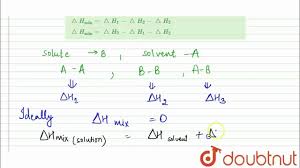 △ H_mix = △ H₁ - △ H₂ - △ H₃
solute → B , solvent - A
A - A B - B A - B
⇓ ⇓ ⇓
△H₁ △H₂ △H₃
Ideally △H mix = 0
△H mix (solution) = △H solvent +
doubtnut